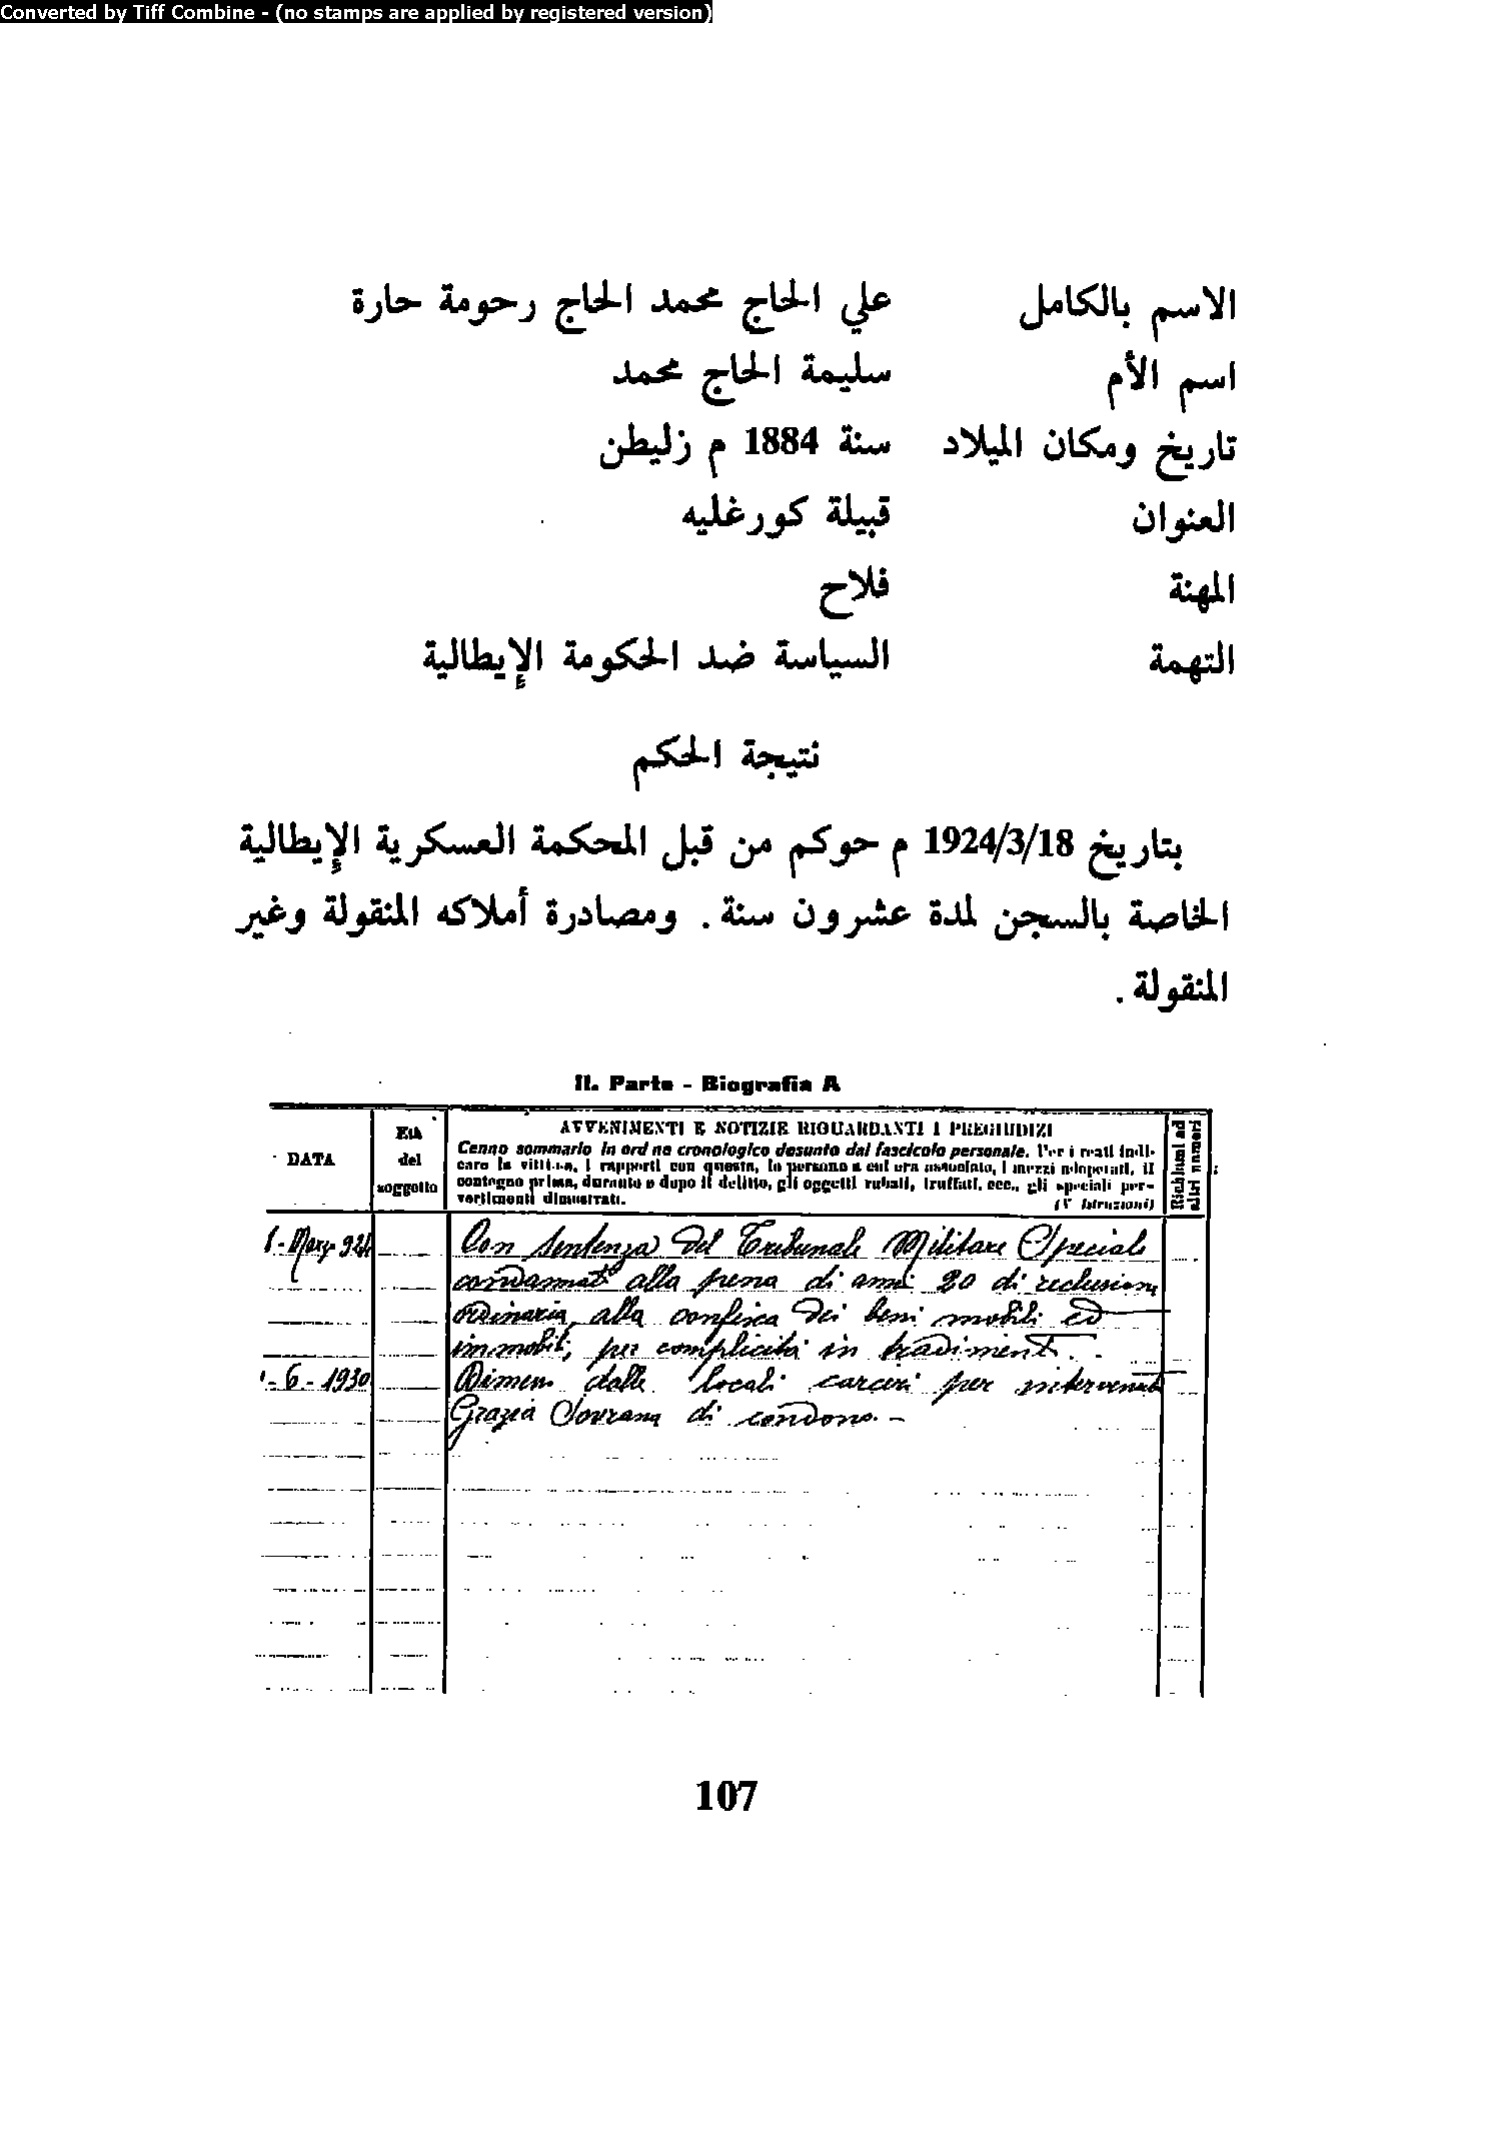 Converted by Tiff Combine - (no stamps are applied by registered version)
الاسم بالكامل علي الحاج محمد الحاج رحومة حارة
اسم الأم سليمة الحاج محمد
تاريخ ومكان الميلاد سنة 1884 م زليطن
العنوان قبيلة كورغليه
المهنة فلاح
التهمة السياسة ضد الحكومة الإيطالية
نتيجة الحكم
بتاريخ 1924/3/18 م حوكم من قبل المحكمة العسكرية الإيطالية
الخاصة بالسجن لمدة عشرون سنة . ومصادرة أملاكه المنقولة وغير
المنقولة .
II. Parte - Biografia A
DATA
Età
del
soggetto
AVVENIMENTI E NOTIZIE RIGUARDANTI I PREGIUDIZI
Cenno sommario in ord ne cronologico desunto dal fascicolo personale. Per i reati indi-
care la vittima, i rapporti con questa, le persone a cui era associato, i mezzi adoperati, il
contegno prima, durante e dopo il delitto, gli oggetti rubati, truffati, ecc., gli speciali per-
vertimenti dimostrati.
(V Istruzioni)
Richiami ad
altri numeri
Con sentenza del Tribunale Militare Speciale
condannato alla pena di anni 20 di reclusione
ordinaria, alla confisca dei beni mobili ed
immobili, per complicità in tradimento.
- 6 - 1930 Dimesso dalle locali carceri per intervenuta
Grazia Sovrana di condono. -
107